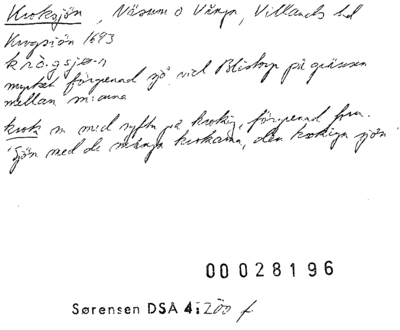 Kroksjön, Näsum o Vånga, Villands hd
Krogsiön 1693
k r o . g s j ø . n
mycket förgrenad sjö vid Blekinge på gränsen
mellan
krok m med syftn på krokig, förgrenad form.
'Sjön med de många krokarna, den krokiga sjön'
00028196
Sørensen DSA 4:200 f